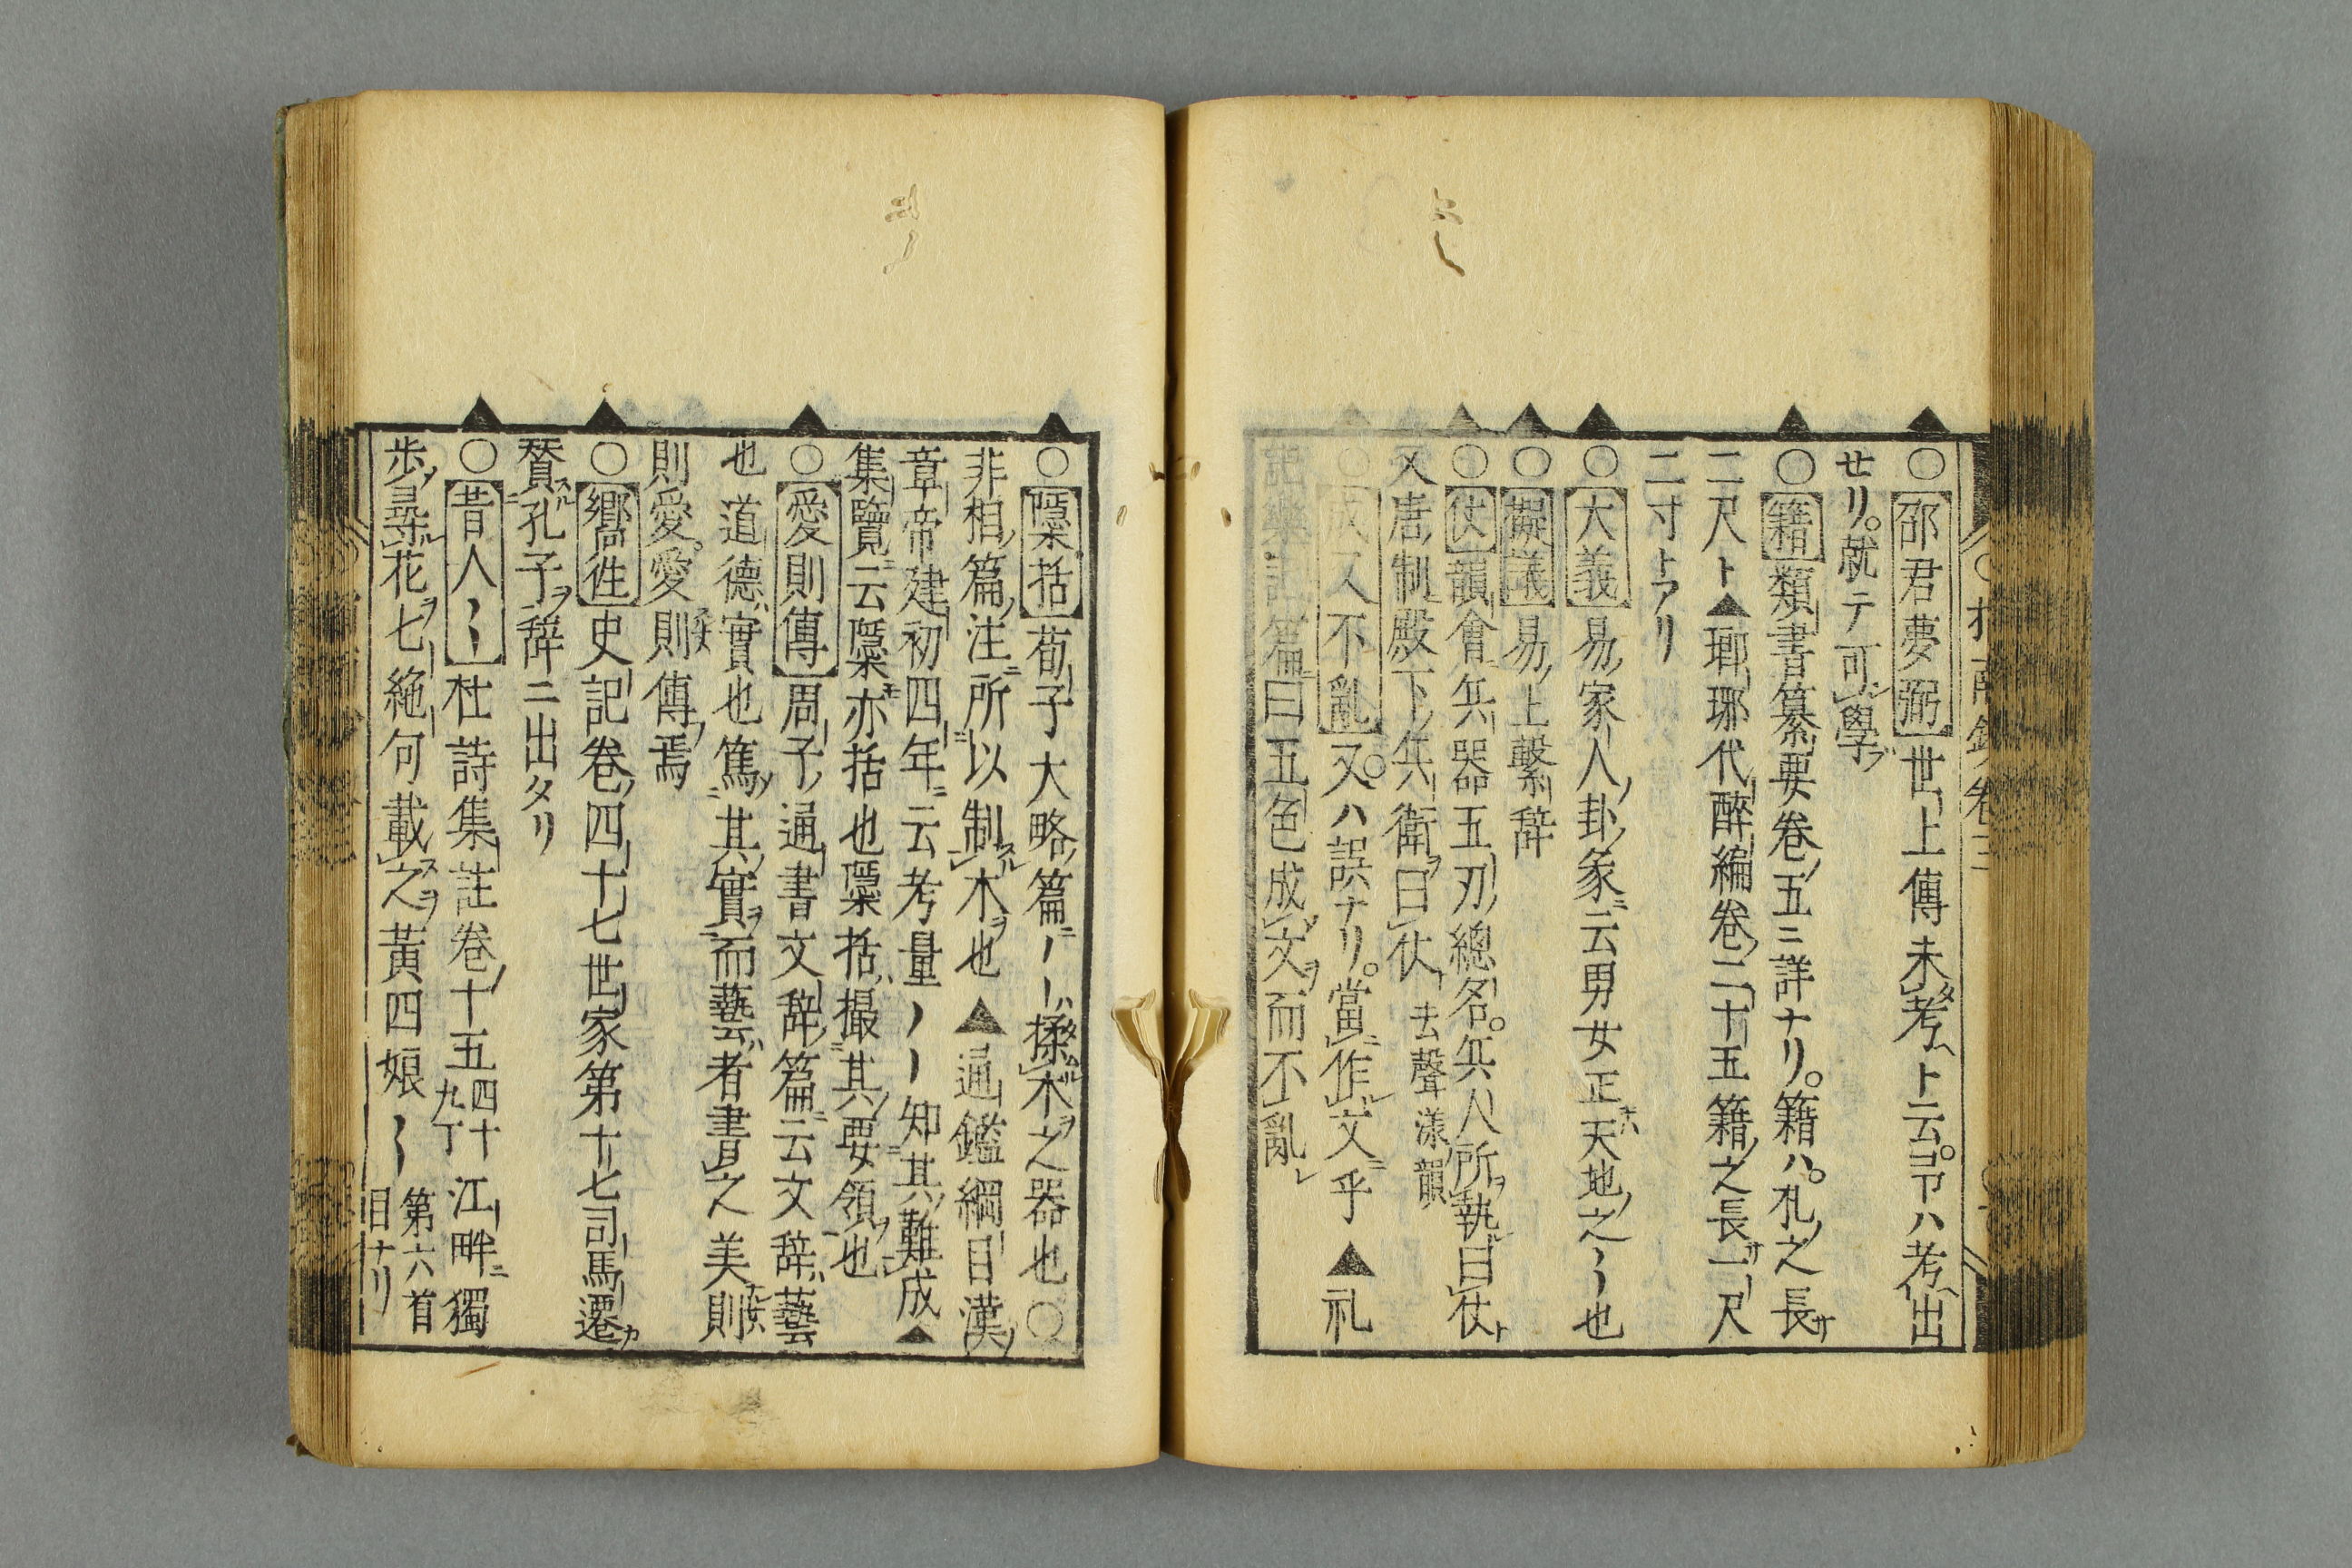 ○邵君夢弼世上傳未考ト云。弓ハ考出
セリ。就テ可學
○籍類書纂要卷五ニ詳ナリ。籍ハ。札之長
二尺ト▲瑯琊代醉編卷二十五籍之長一尺
二寸トアリ
○大義易家人卦彖云男女正天地之〱也
○擬議易上繫辞
○仗韻會兵器五刃總名。兵人所執曰仗
又唐制殿下兵衛曰仗去聲漾韻
○成又不亂又ハ誤ナリ。當作文乎▲礼
記樂記篇曰五色成文而不亂
○檃括荀子大略篇〱檃木之器也○
非相篇注所以制木也▲通鑑綱目漢
章帝建初四年云考量〱知其難成▲
集覽云檃亦括也檃括撮其要領也
○愛則傳周子通書文辞篇云文辞藝
也道德實也篤其實而藝者書之美則
則愛愛則傳焉
○嚮徃史記卷四十七世家第十七司馬遷
賛孔子辞ニ出タリ
○昔人〱杜詩集註卷十五四十九丁江畔獨
歩尋花七絶句載之黃四娘〱第六首目ナリ